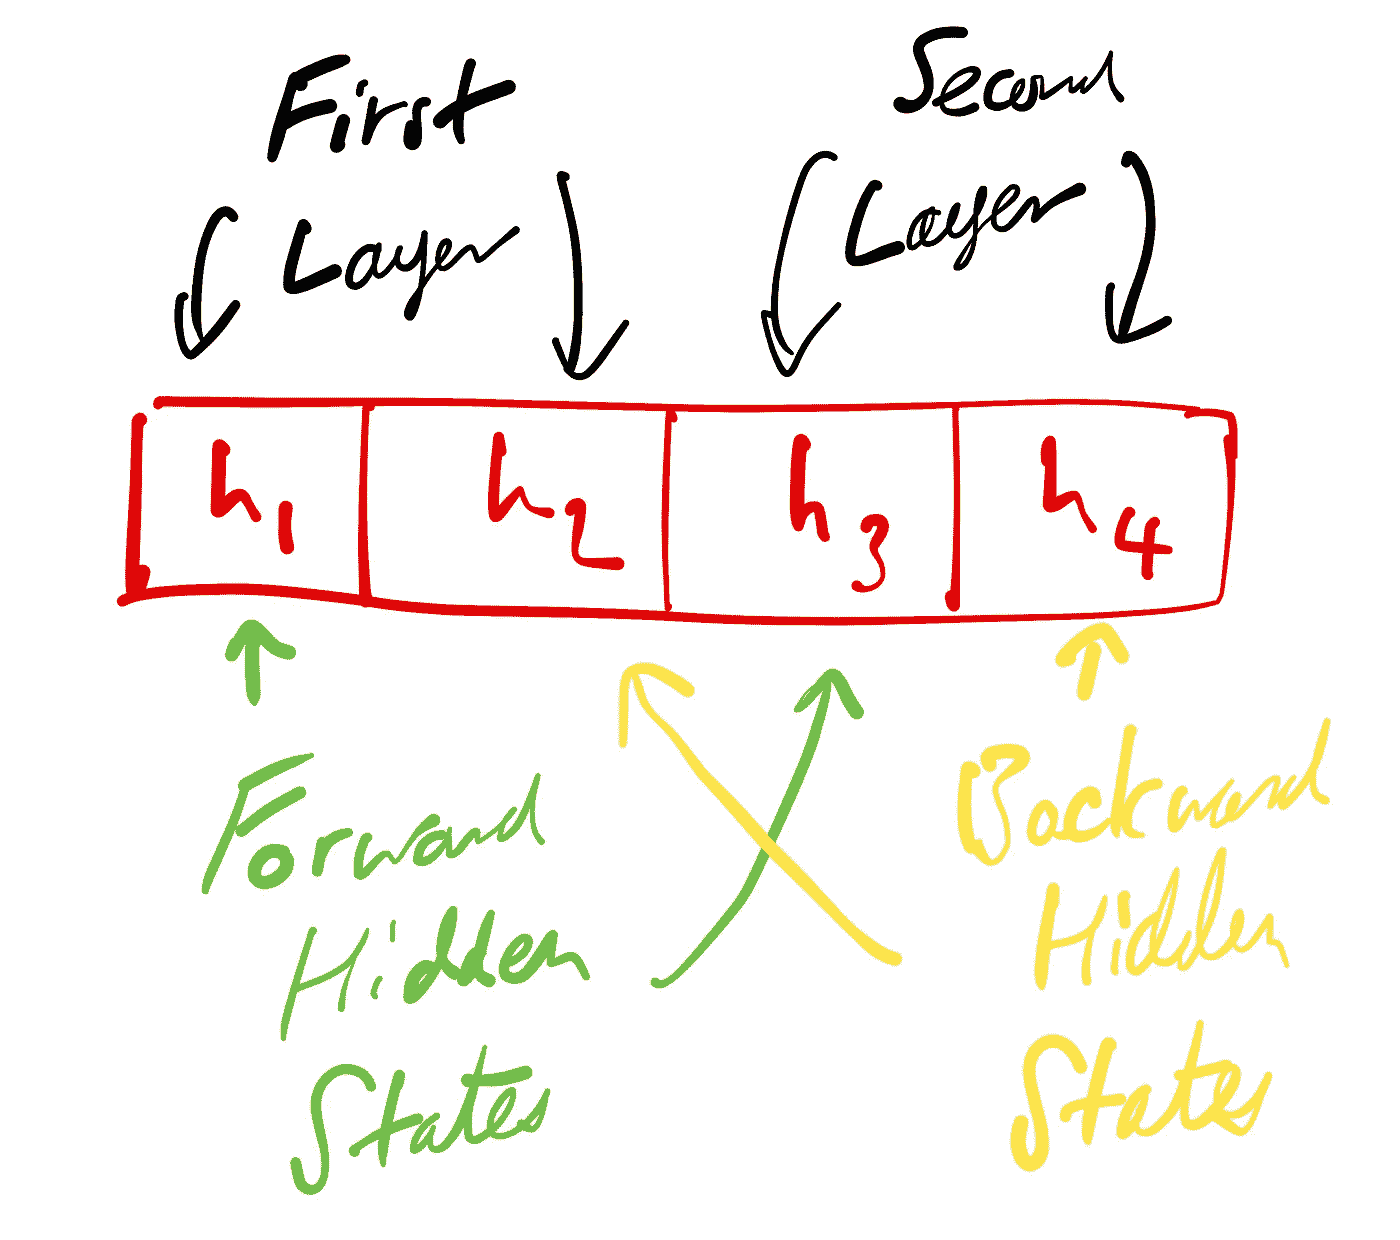 First
Layer
Second
Layer
h1 h2 h3 h4
Forward
Hidden
States
Backward
Hidden
States